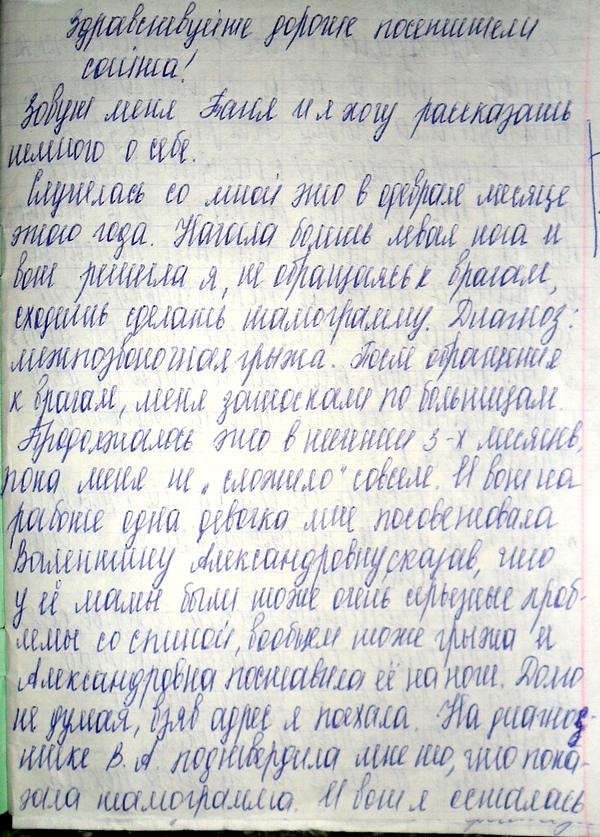 Здравствуйте дорогие посетители
сайта!
Зовут меня Таня и я хочу рассказать
немного о себе.
Случилась со мной это в феврале месяце
этого года. Начала болеть левая нога и
вот решила я, не обращаясь к врачам,
сходить сделать тамограмму. Диагноз:
межпозвоночная грыжа. После обращения
к врачам, меня затоскали по больницам.
Продолжалось это в течении 3-х месяцев,
пока меня не „сложило" совсем. И вот на
работе одна девочка мне посоветовала
Валентину Александровну, сказав, что
у её мамы были тоже очень серьёзные проб-
лемы со спиной, вообщем тоже грыжа и
Александровна поставила её на ноги. Долго
не думая, взяв адрес я поехала. На диагнос-
тике В.А. подтвердила мне то, что пока-
зала тамограмма. И вот я осталась